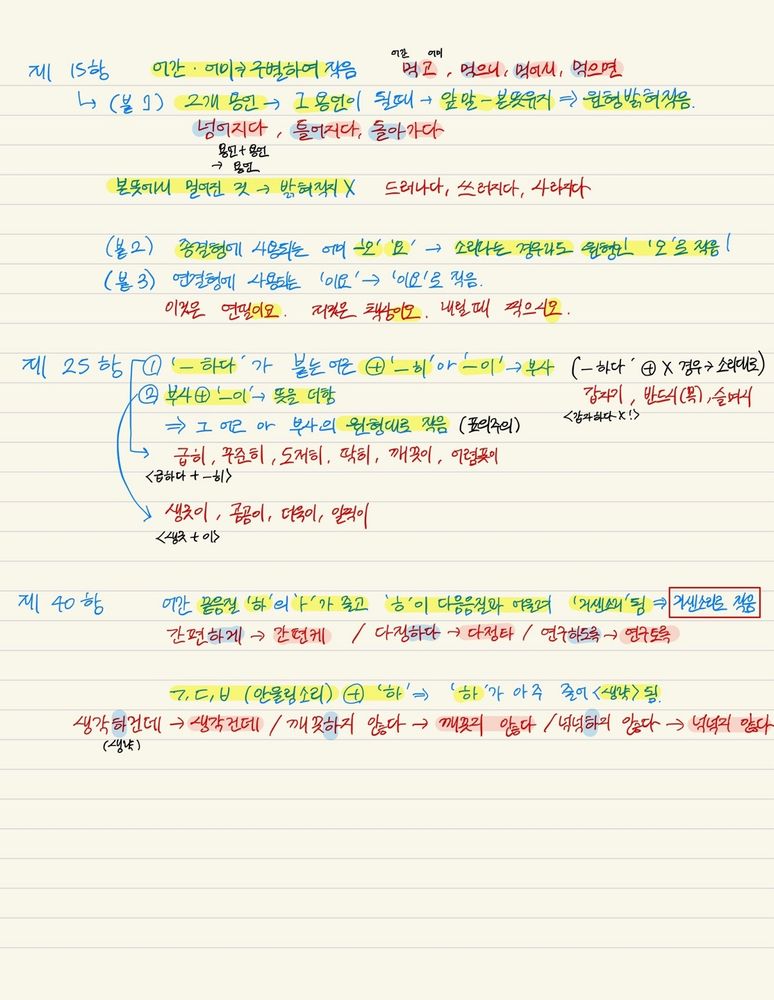 어간 어미
제 15항 어간·어미⇒구별하여 적음 먹고, 먹으니, 먹어서, 먹으면
↳ (붙 1) 2개 용언 → 그 용언이 될때 → 앞말-본뜻유지 ⇒ 원형밝혀적음.
넘어지다, 틀어지다, 돌아가다
용언+용언
→ 용언
본뜻에서 멀어진 것 → 밝혀적지 X 드러나다, 쓰러지다, 사라지다
(붙 2) 종결형에 사용되는 어미 '-오' '요' → 소리나는 경우라도 원형인 '오'로 적음!
(붙 3) 연결형에 사용되는 '이요' → '이요'로 적음.
이것은 연필이오. 저것은 책상이오. 내릴때 찍으시오.
제 25항 ① '-하다'가 붙는 어근 ⊕ '-히'아 '-이' → 부사 (-하다' ⊕ X 경우→소리대로)
② 부사⊕'-이' → 뜻을 더함 갑자기, 반드시(꼭), 슬며시
<갑자하다X!>
⇒ 그 어근 아 부사의 원형대로 적음 (표의주의)
급히, 꾸준히, 도저히, 딱히, 깨끗이, 어렴풋이
<급하다+-히>
생긋이, 곰곰이, 더욱이, 일찍이
<생긋+이>
제 40항 어간 끝음절 '하'의 'ㅏ'가 줄고 'ㅎ'이 다음음절과 어울려 '거센소리'됨 ⇒ 거센소리로 적음
간편하게 → 간편케 / 다정하다 → 다정타 / 연구하도록 → 연구토록
ㄱ,ㄷ,ㅂ (안울림소리) ⊕ '하' ⇒ '하'가 아주 줄어 <생략> 됨.
생각하건데 → 생각건데 / 깨끗하지 않다 → 깨끗지 않다 / 넉넉하지 않다 → 넉넉지 않다
(생략)